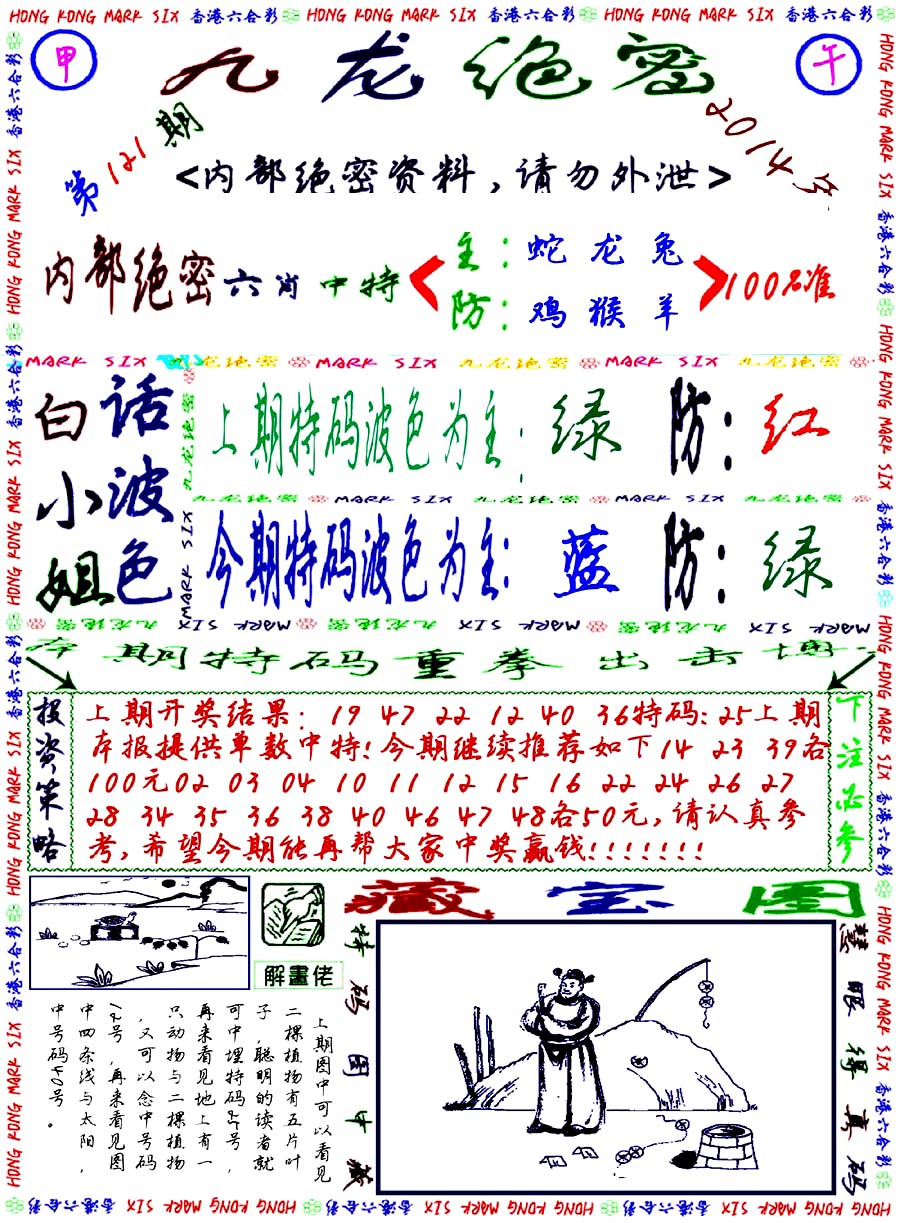 HONG KONG MARK SIX 香港六合彩 HONG KONG MARK SIX 香港六合彩 HONG KONG MARK SIX 香港六合彩
甲
九龙绝密
午
第121期
2014年
<内部绝密资料,请勿外泄>
内部绝密六肖中特
主:蛇龙兔
防:鸡猴羊
100%准
MARK SIX 九龙绝密 MARK SIX 九龙绝密 MARK SIX 九龙绝密
白小姐
话波色
上期特码波色为主:绿 防:红
九龙绝密 MARK SIX 九龙绝密 MARK SIX 九龙绝密
今期特码波色为主:蓝 防:绿
本期特码重拳出击搏
投资策略
上期开奖结果: 19 47 22 12 40 36特码:25上期
本报提供单数中特!今期继续推荐如下14 23 39各
100元02 03 04 10 11 12 15 16 22 24 26 27
28 34 35 36 38 40 46 47 48各50元,请认真参
考,希望今期能再帮大家中奖赢钱!!!!!!!
下注必参
解畫佬
藏宝图
上期图中可以看见
二棵植物有五片叶
子,聪明的读者就
可中埋特码
再来看见地上有一
只动物与二棵植物
,又可以念中号码
12号,再来看见图
中四条线与太阳,
中号码40号。
特码图中藏
慧眼得真码
HONG KONG MARK SIX 香港六合彩 HONG KONG MARK SIX 香港六合彩 HONG KONG MARK SIX 香港六合彩